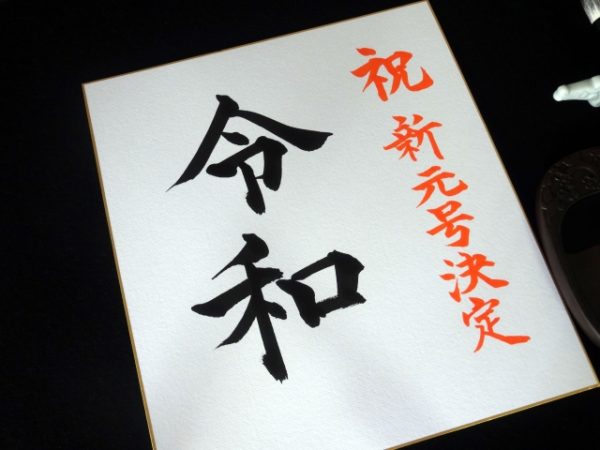 祝 新元号決定
令和